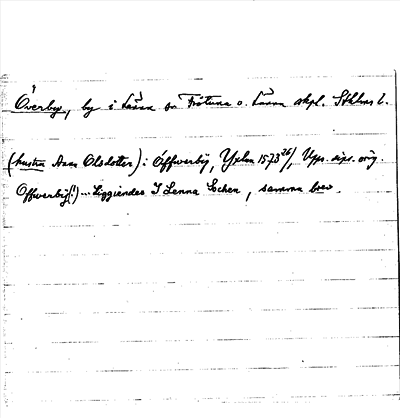 Överby, by i Länna sn Frötuna o. Länna skpl. Sthlms l.
(hustru Anna Olsdotter): Öffwerby, Yxlan 1573 26/, Upps. dipl. orig.
Offwerby(!) ... Liggiendes I Lenna Sochen, samma brev.